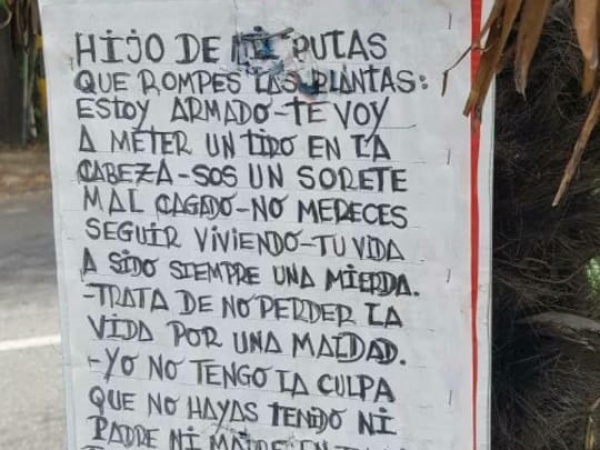 HIJO DE MIL PUTAS
QUE ROMPES LAS PLANTAS:
ESTOY ARMADO-TE VOY
A METER UN TIRO EN LA
CABEZA-SOS UN SORETE
MAL CAGADO-NO MERECES
SEGUIR VIVIENDO-TU VIDA
A SIDO SIEMPRE UNA MIERDA.
-TRATA DE NO PERDER LA
VIDA POR UNA MALDAD.
-YO NO TENGO LA CULPA
QUE NO HAYAS TENIDO NI
PADRE NI MADRE